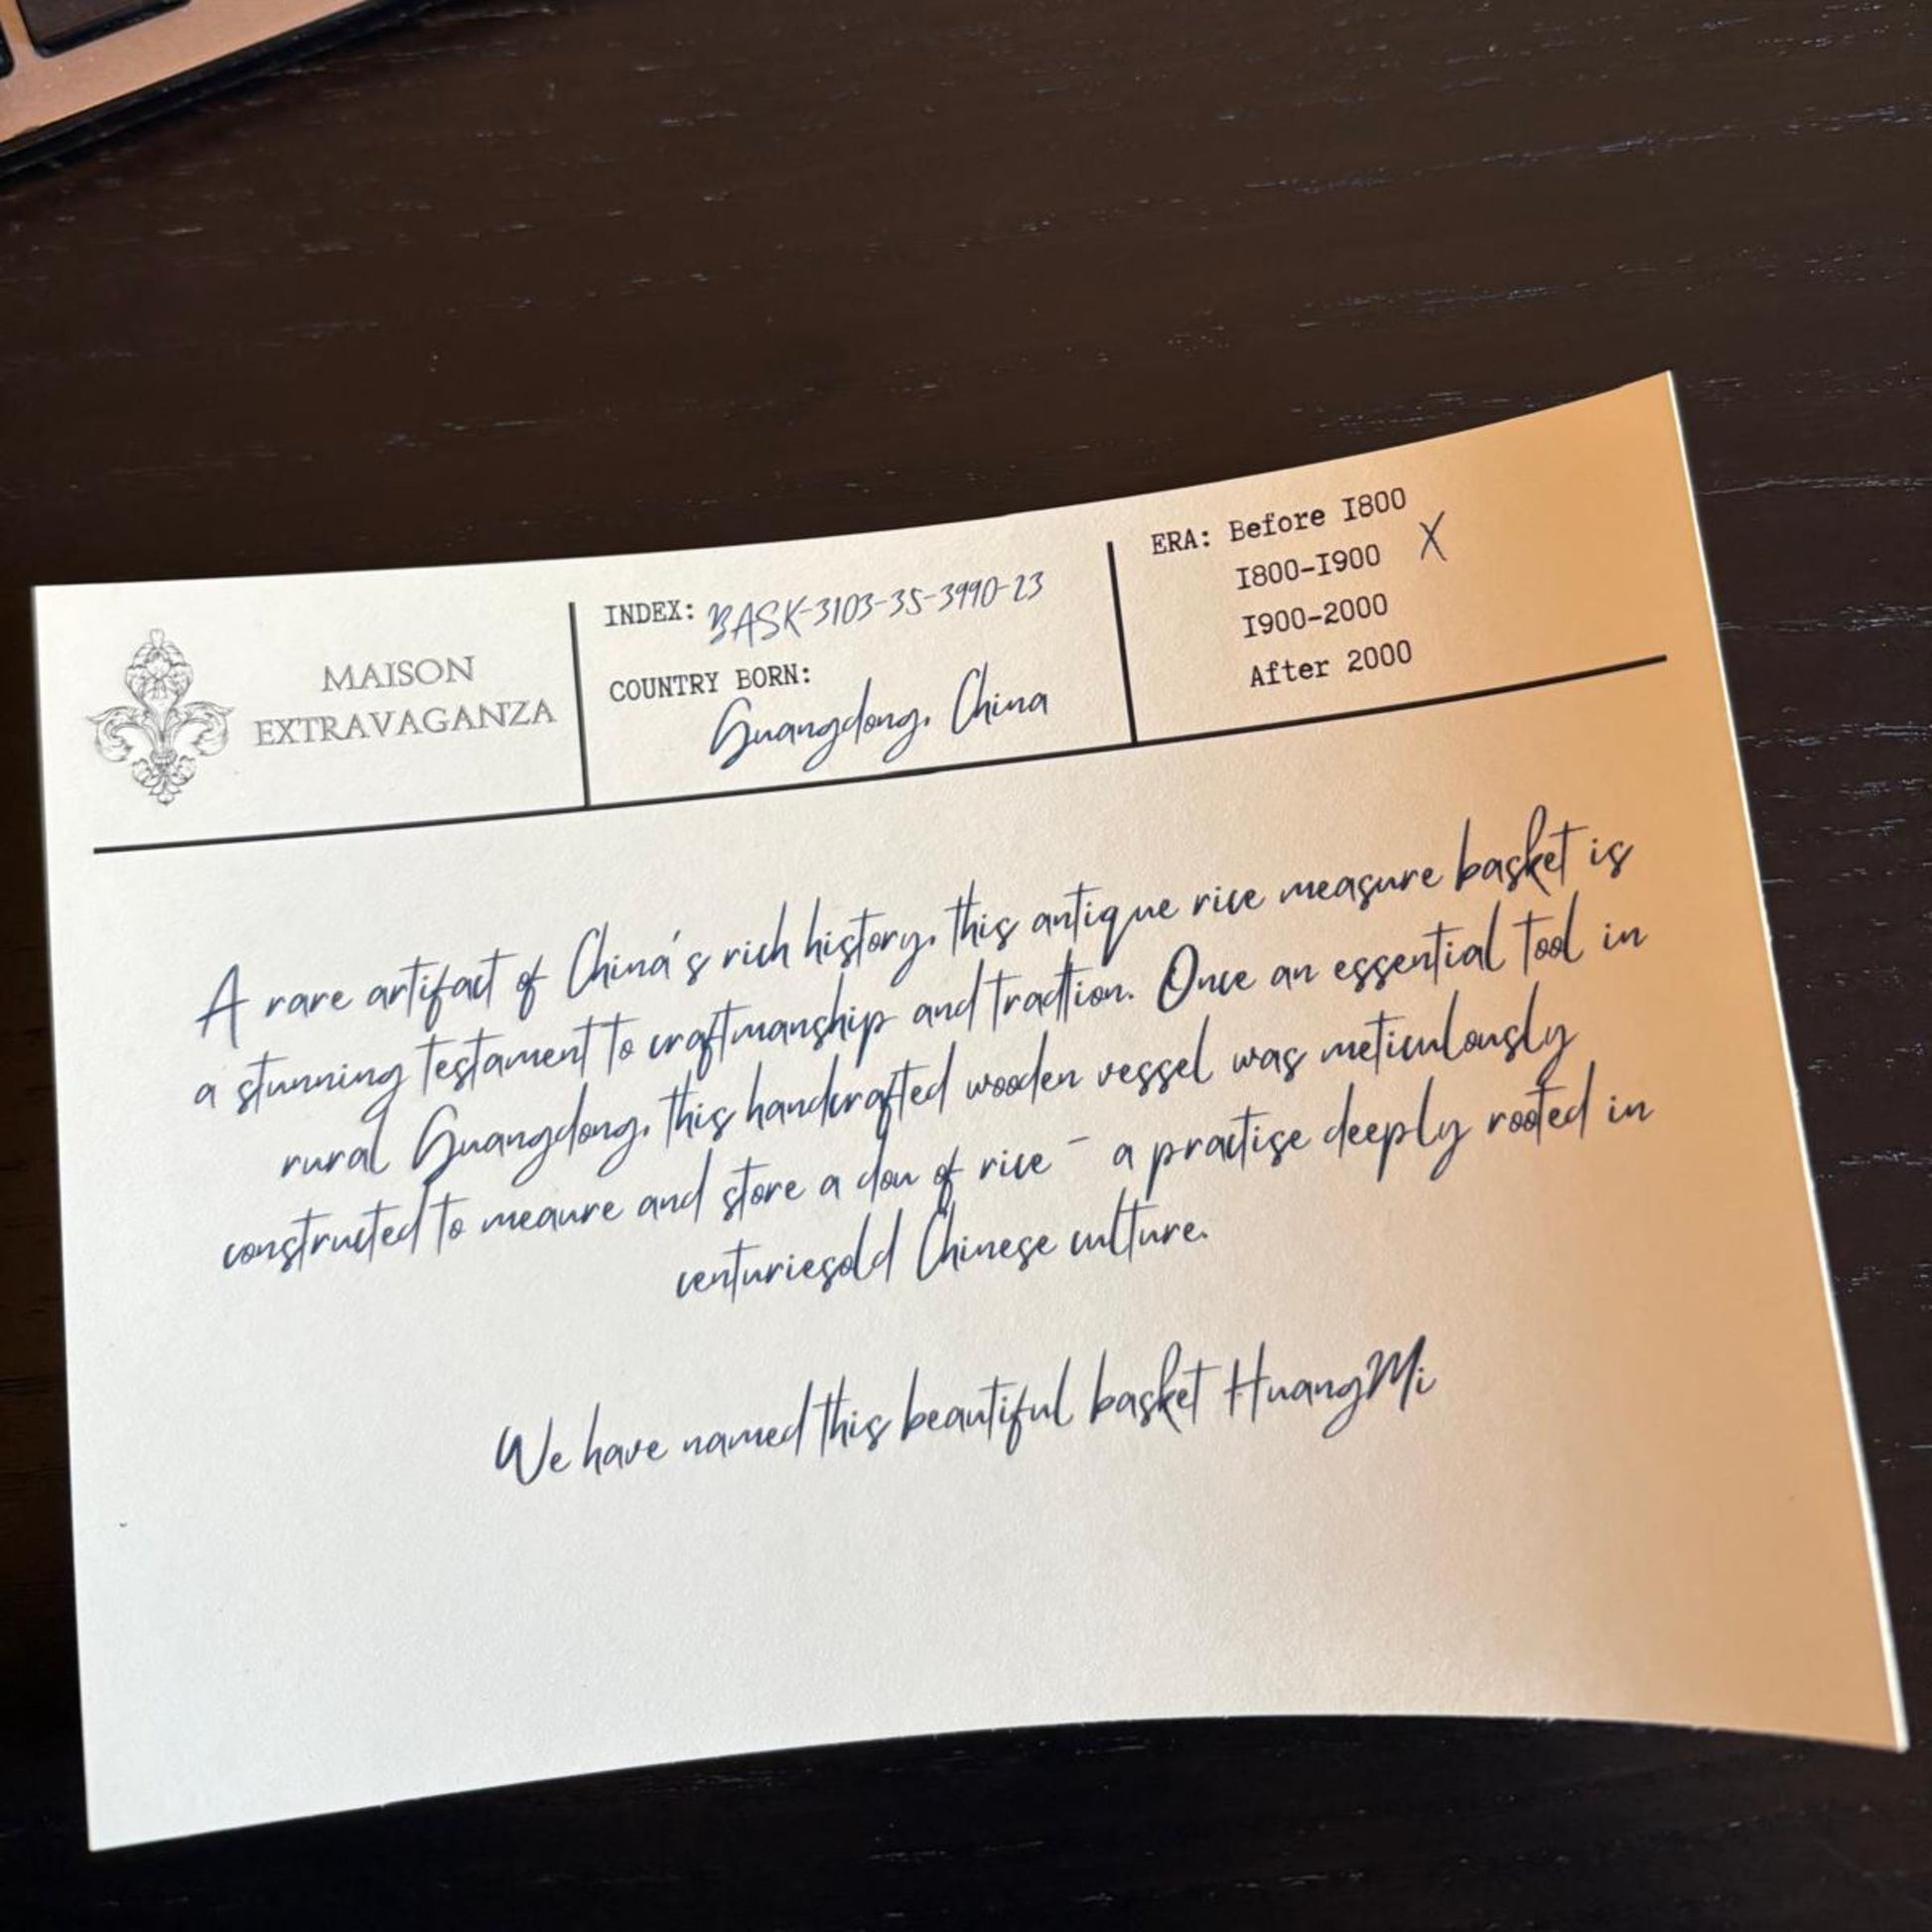 MAISON
EXTRAVAGANZA
INDEX: BASK-3103-35-3990-23
COUNTRY BORN:
Guangdong, China
ERA: Before I800
I800-I900 X
I900-2000
After 2000
A rare artifact of China's rich history, this antique rice measure basket is
a stunning testament to craftmanship and tradtion. Once an essential tool in
rural Guangdong, this handcrafted wooden vessel was meticulously
constructed to meaure and store a dou of rice - a practise deeply rooted in
centuriesold Chinese culture.
We have named this beautiful basket HuangMi